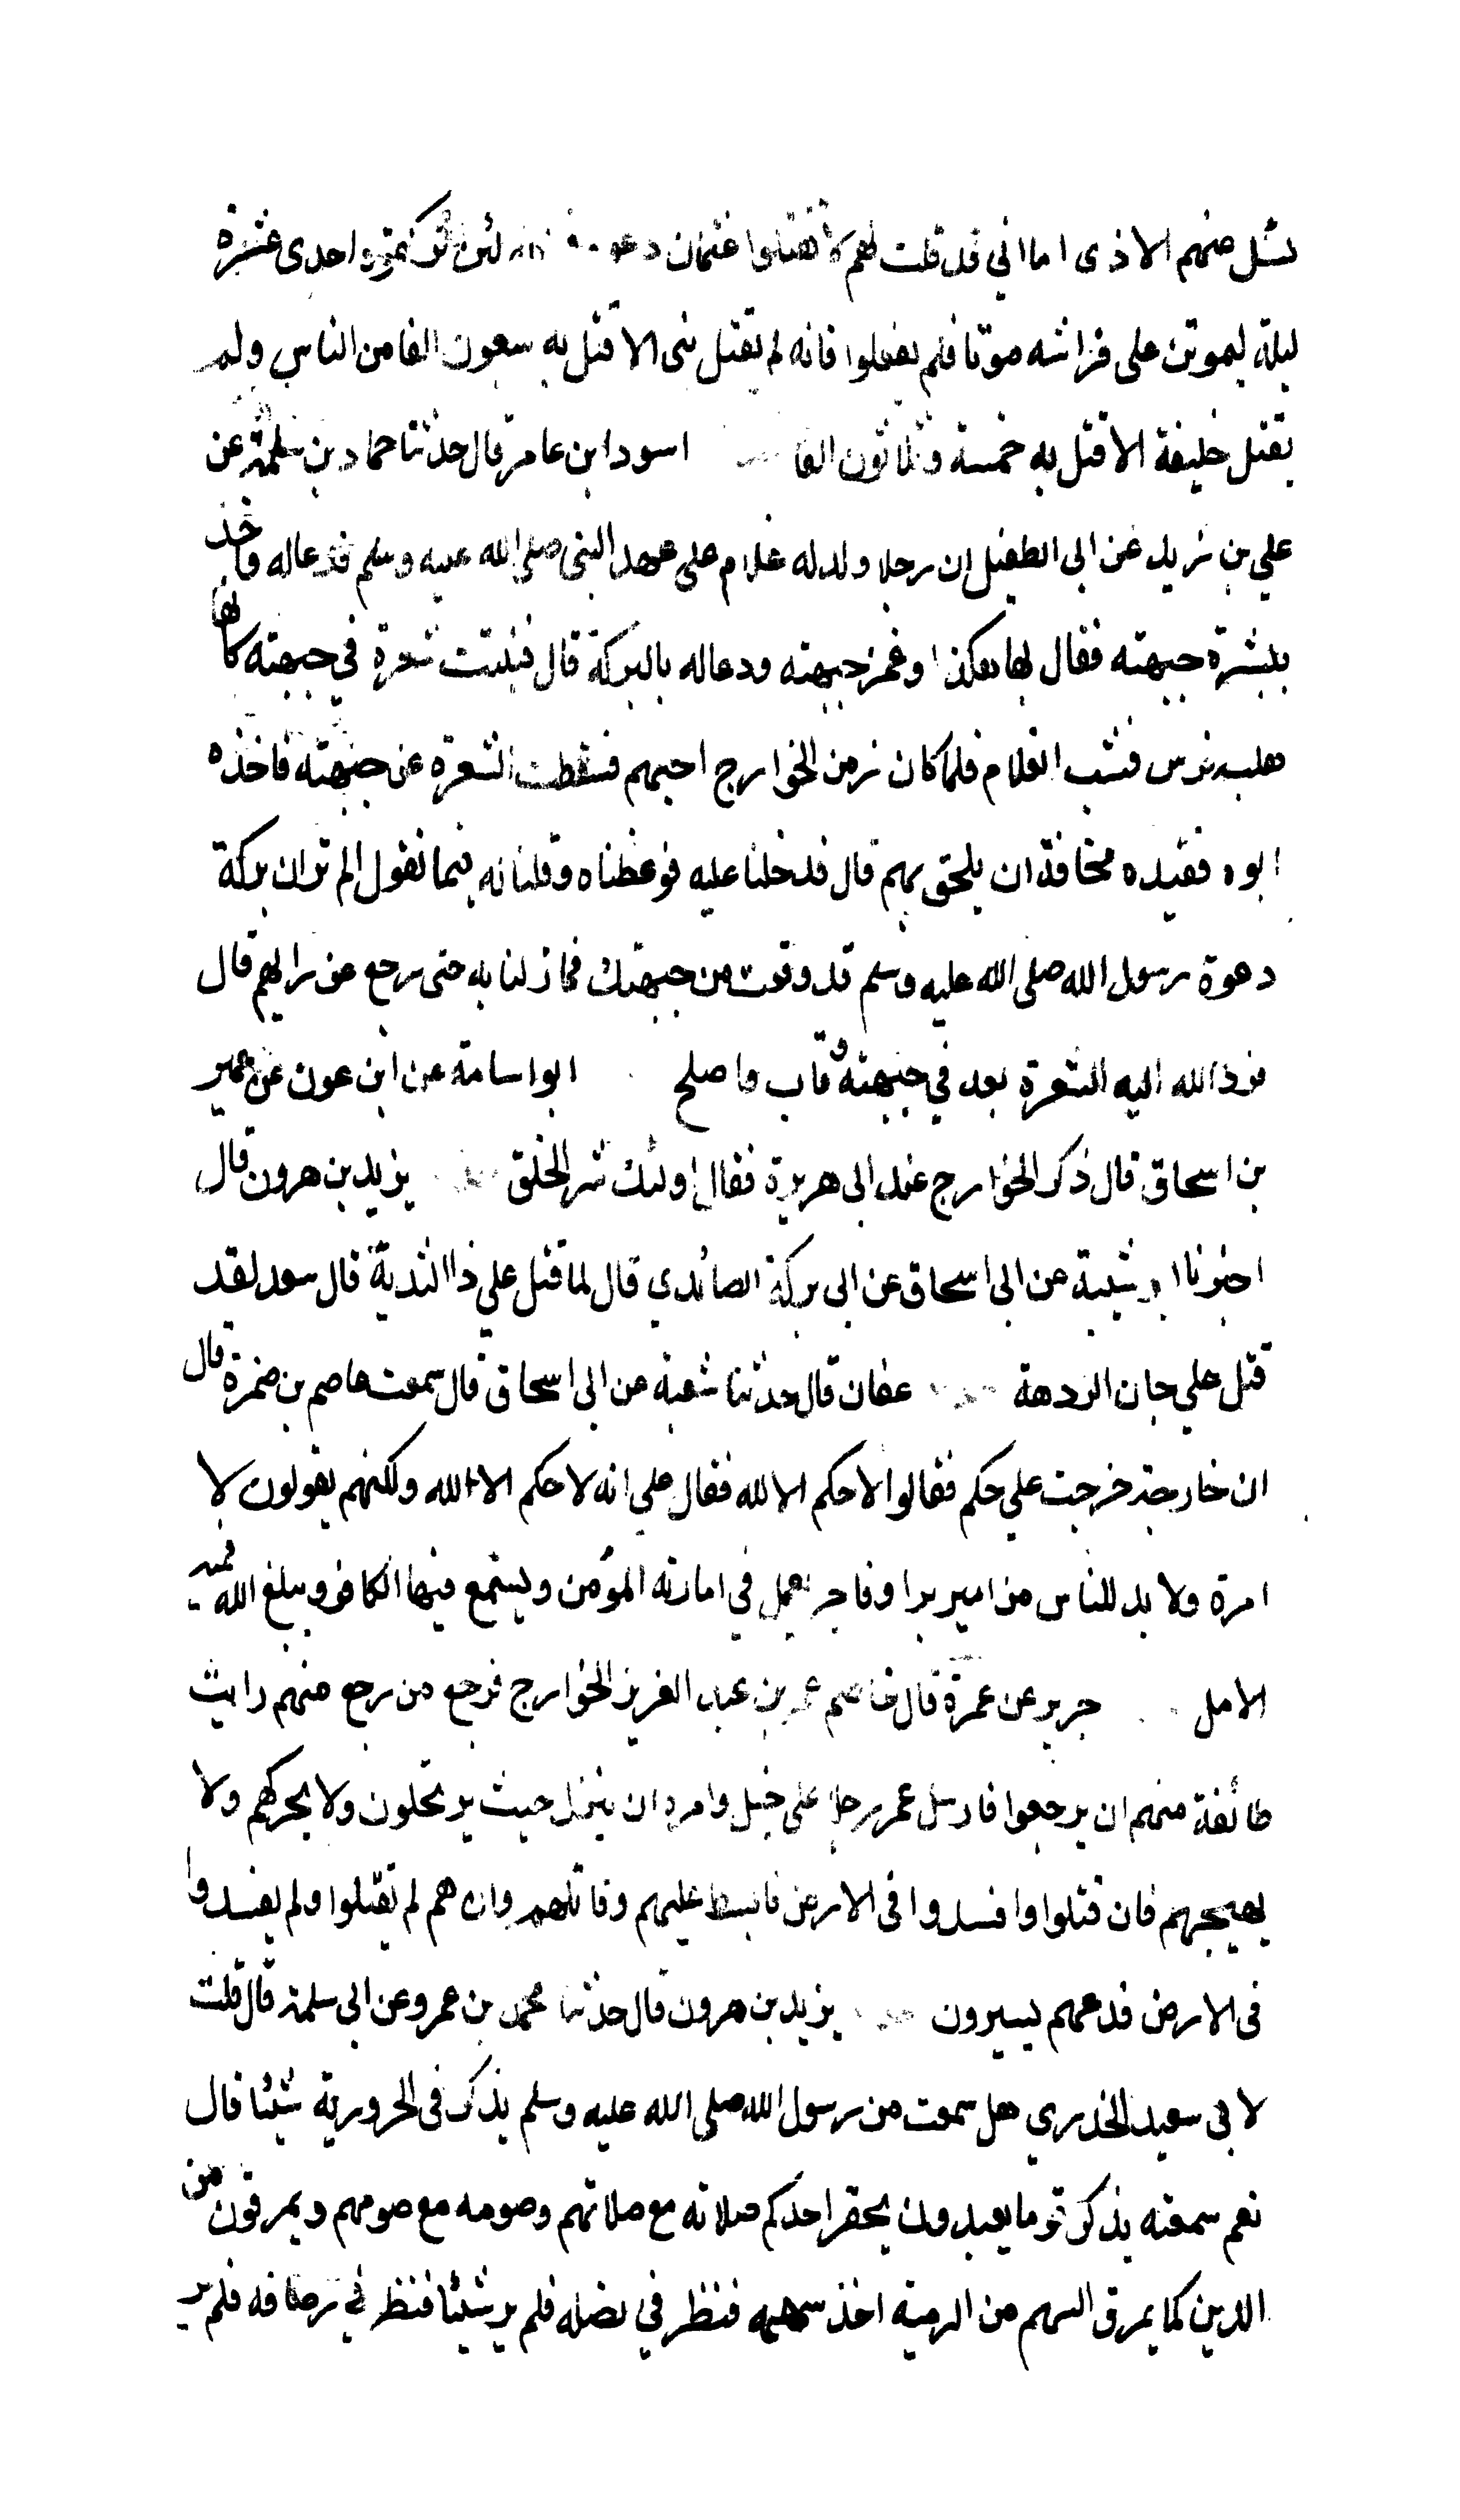 منهم الاذى اما اني قد قلت لهم لا تقتلوا عثمان دعوه لئن تركتموه احدى عشرة
ليلة ليموتن على فراشه موتا فلم يفعلوا فانه لم يقتل نبى الا قتل به سبعون الفا من الناس ولم
يقتل خليفة الا قتل به خمسة وثلاثون الفا اسود ابن عامر قال حدثنا حماد بن سلمة عن
علي بن زيد عن ابى الطفيل ان رجلا ولد له غلام على عهد النبى صلى الله عليه وسلم فدعا له واخذ
ببشرة جبهته فقال بها هكذا وغمز جبهته ودعا له بالبركة قال فنبتت شعرة في جبهته كانها
هلبة فرس فشب الغلام فلما كان زمن الخوارج احبهم فسقطت الشعرة عن جبهته فاخذه
ابوه فقيده مخافة ان يلحق بهم قال فدخلنا عليه فوعظناه وقلنا له فيما نقول الم تر ان بركة
دعوة رسول الله صلى الله عليه وسلم قد وقعت من جبهتك فما زلنا به حتى رجع عن رايهم قال
فرد الله اليه الشعرة بعد في جبهته وتاب واصلح ابو اسامة عن ابن عون عن عمير
بن اسحاق قال ذكر الخوارج عند ابى هريرة فقال اولئك شر الخلق يزيد بن هرون قال
اخبرنا ابو شيبة عن ابى اسحاق عن ابى بركة الصائدي قال لما قتل علي ذا الثدية قال سعد لقد
قتل علي جان الردهة عفان قال حدثنا شعبة عن ابى اسحاق قال سمعت عاصم بن ضمرة قال
ان خارجة خرجت على حكم فقالوا لا حكم الا لله فقال علي انه لا حكم الا لله ولكنهم يقولون لا
امرة ولا بد للناس من امير بر او فاجر يعمل في امارته المؤمن ويستمع فيها الكافر ويبلغ الله فيه
الامل جرير عن عمرة قال خاصم عمر بن عبد العزيز الخوارج فرجع من رجع منهم وابت
طائفة منهم ان يرجعوا فارسل عمر رجلا على خيل وامره ان ينزل حيث يرتحلون ولا يحركهم ولا
يهيجهم فان قتلوا وافسدوا فى الارض فابسط عليهم وقاتلهم وان هم لم يقتلوا ولم يفسدوا
فى الارض فدعهم يسيرون يزيد بن هرون قال حدثنا محمد بن عمرو عن ابى سلمة قال قلت
لابى سعيد الخدري هل سمعت من رسول الله صلى الله عليه وسلم يذكر فى الحرورية شيئا قال
نعم سمعته يذكر قوما يعبدون يحقر احدكم صلاته مع صلاتهم وصومه مع صومهم ويمرقون من
الدين كما يمرق السهم من الرمية اخذ سهمه فنظر في نصله فلم ير شيئا فنظر في رصافه فلم ير